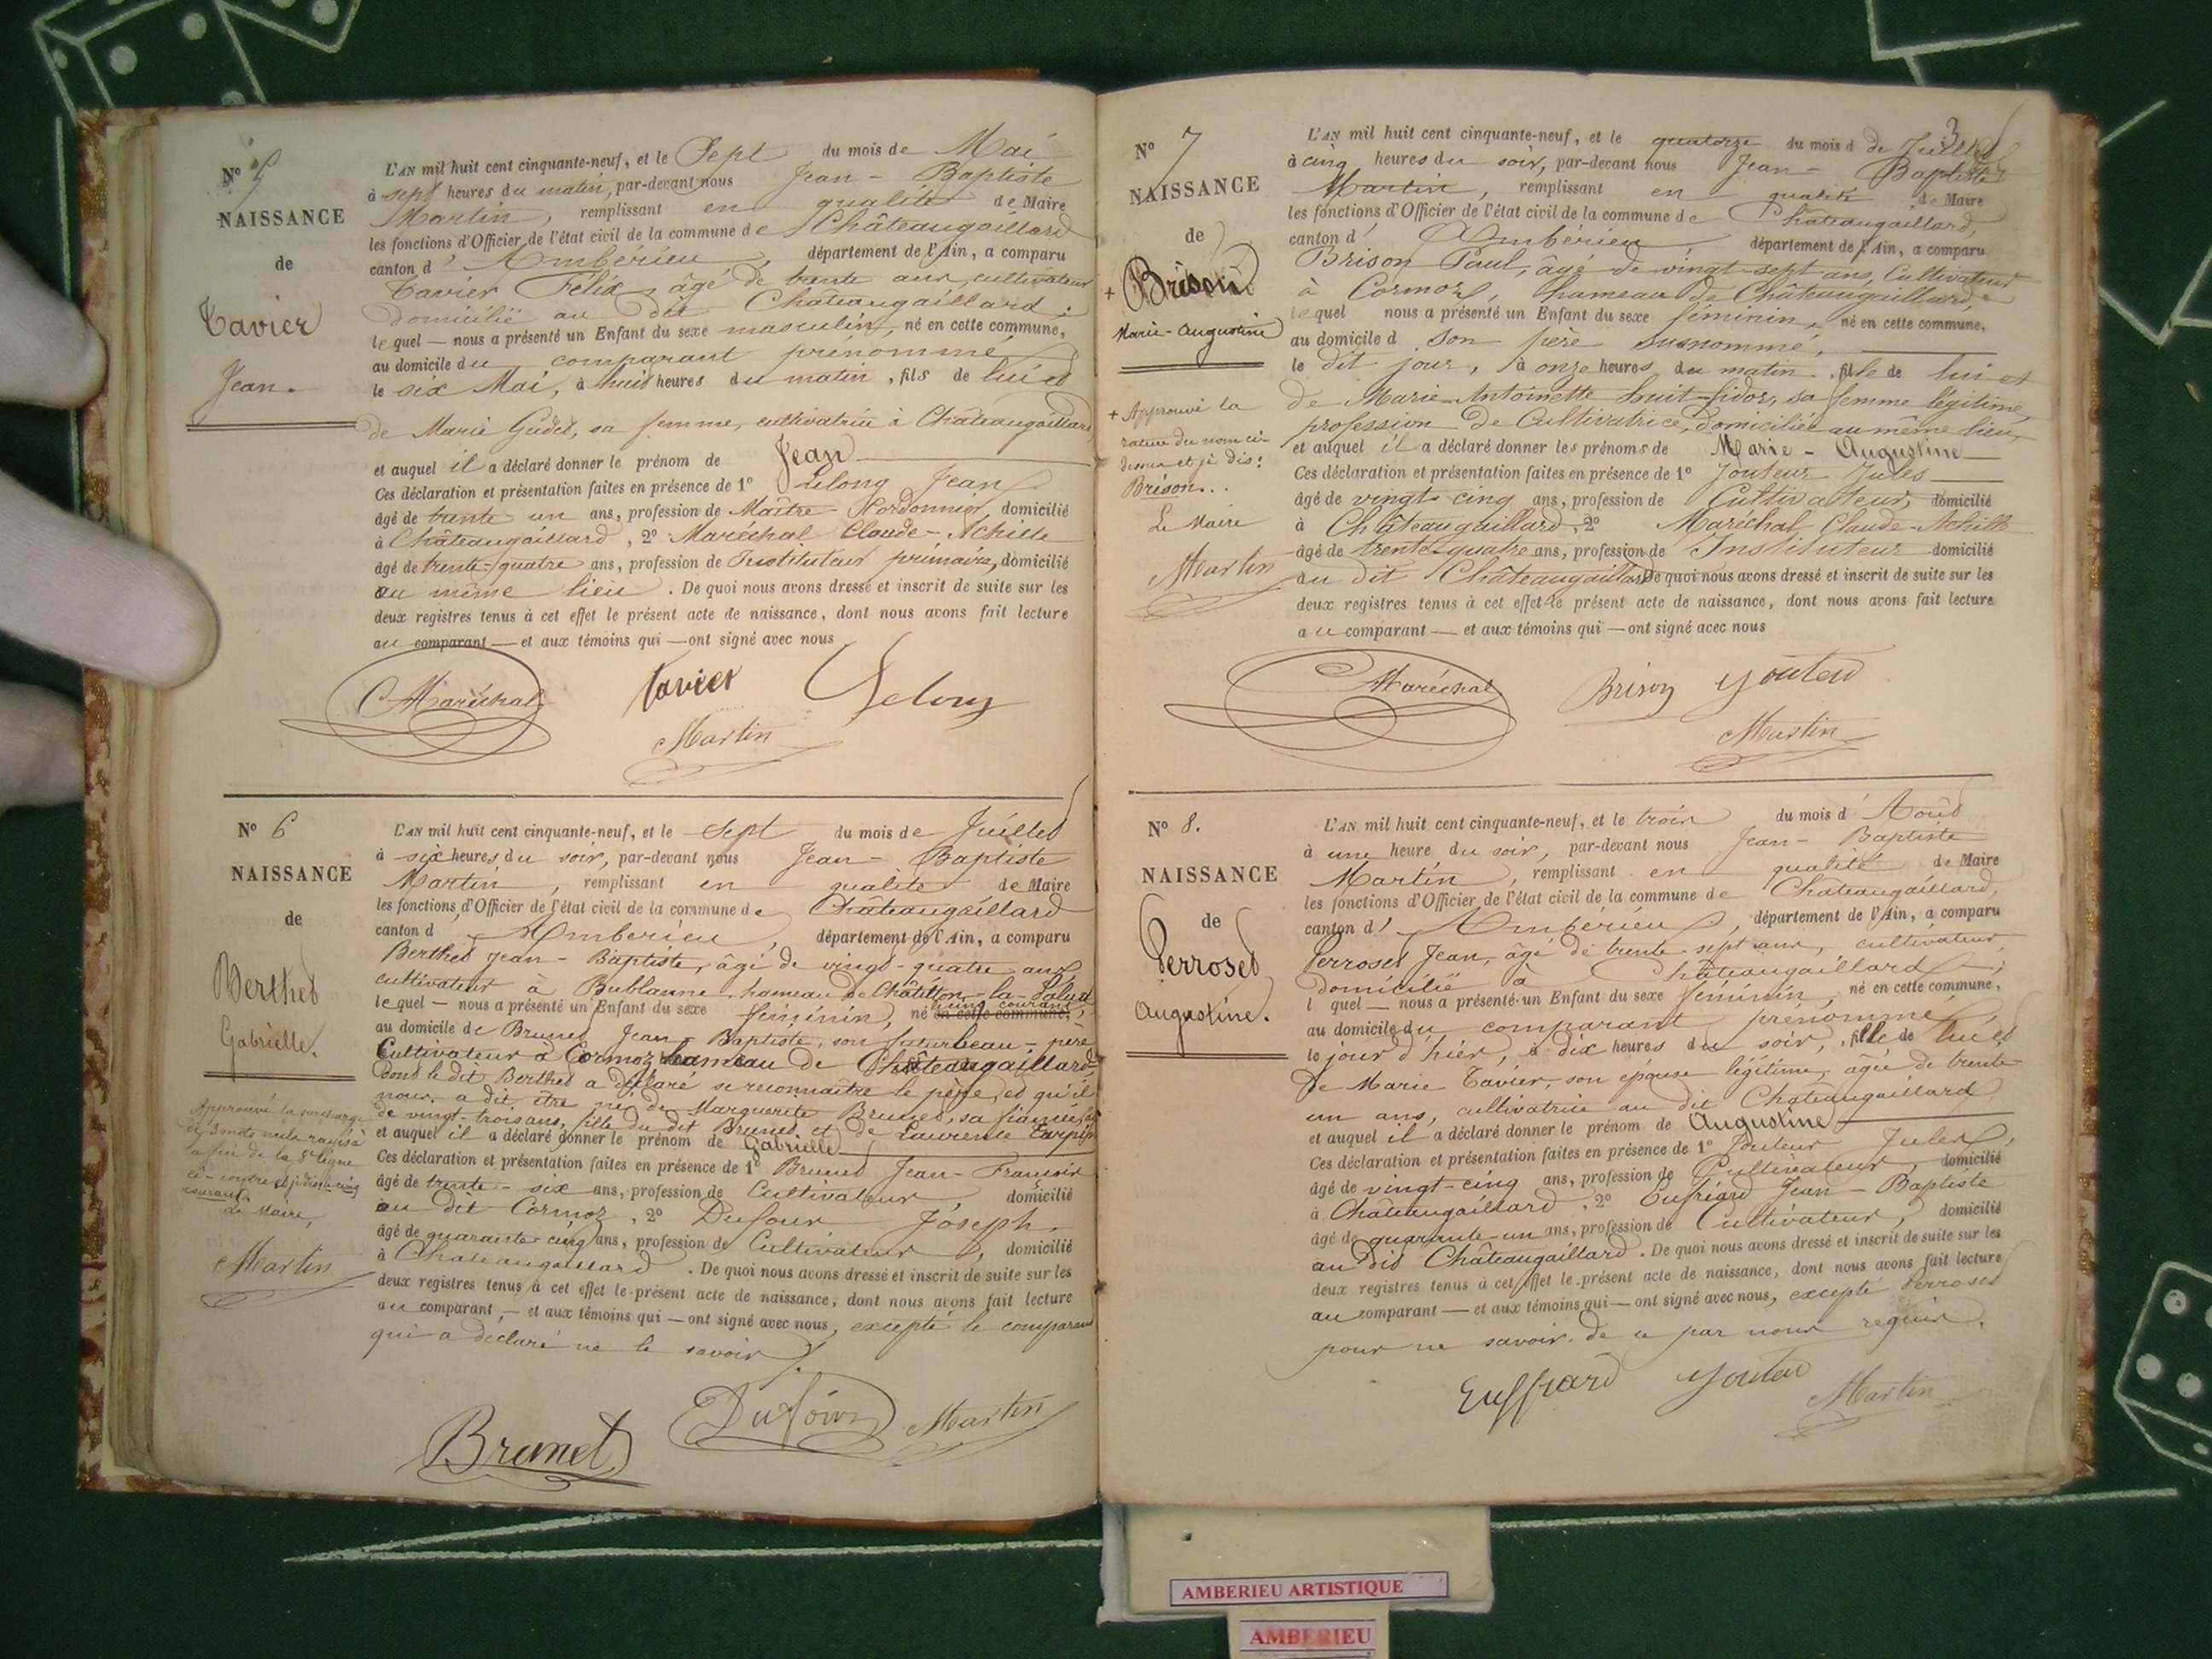 N° 5
NAISSANCE
de
Tavier
Jean.
L'AN mil huit cent cinquante-neuf, et le Sept du mois de Mai
à sept heures du matin, par-devant nous Jean - Baptiste
Martin, remplissant en qualité de Maire
les fonctions d'Officier de l'état civil de la commune de Châteaugaillard
canton d' Ambérieu, département de l'Ain, a comparu
Tavier Félix, âgé de trente ans, cultivateur
domicilié au dit Châteaugaillard;
lequel — nous a présenté un Enfant du sexe masculin, né en cette commune,
au domicile du comparant prénommé,
le six Mai, à huit heures du matin, fils de lui et
de Marie Gudet, sa femme, cultivatrice à Châteaugaillard
et auquel il a déclaré donner le prénom de Jean
Ces déclaration et présentation faites en présence de 1° Lelong Jean
âgé de trente un ans, profession de Maître - Cordonnier, domicilié
à Châteaugaillard, 2° Maréchal Claude - Achille
âgé de trente-quatre ans, profession de Instituteur primaire, domicilié
au même lieu. De quoi nous avons dressé et inscrit de suite sur les
deux registres tenus à cet effet le présent acte de naissance, dont nous avons fait lecture
au comparant — et aux témoins qui — ont signé avec nous
Maréchal Tavier Lelong
Martin
N° 6
NAISSANCE
de
Berthet
Gabrielle.
Approuvé la surcharge
et 3 mots nuls rayés à
la fin de la 8e ligne
ci-contre et je dis: cinq
courant.
Le Maire,
Martin
L'AN mil huit cent cinquante-neuf, et le Sept du mois de Juillet
à six heures du soir, par-devant nous Jean - Baptiste
Martin, remplissant en qualité de Maire
les fonctions d'Officier de l'état civil de la commune de Châteaugaillard
canton d' Ambérieu, département de l'Ain, a comparu
Berthet Jean - Baptiste, âgé de vingt-quatre ans,
cultivateur à Bublanne, hameau de Châtillon-la-Palud
lequel — nous a présenté un Enfant du sexe féminin, né en cette commune, cinq courant,
au domicile de Brunet Jean - Baptiste, son futur beau - père
Cultivateur à Cormoz hameau de Châteaugaillard
dont le dit Berthet a déclaré se reconnaître le père, et qu'il
nous a dit être né de Marguerite Brunet, sa fiancée,
de vingt-trois ans, fille du dit Brunet et de Laurence Turpin
et auquel il a déclaré donner le prénom de Gabrielle
Ces déclaration et présentation faites en présence de 1° Brunet Jean - François
âgé de trente - six ans, profession de Cultivateur, domicilié
au dit Cormoz, 2° Dufour Joseph,
âgé de quarante-cinq ans, profession de Cultivateur, domicilié
à Châteaugaillard. De quoi nous avons dressé et inscrit de suite sur les
deux registres tenus à cet effet le présent acte de naissance, dont nous avons fait lecture
au comparant, — et aux témoins qui — ont signé avec nous, excepté le comparant
qui a déclaré ne le savoir.
Brunet Dufour Martin
3
N° 7
NAISSANCE
de
+ Brison
Marie-Augustine
+ Approuvé la
rature du nom ci-
dessus et je dis:
Brison..
Le Maire
Martin
L'AN mil huit cent cinquante-neuf, et le quatorze du mois d de Juillet
à cinq heures du soir, par-devant nous Jean - Baptiste
Martin, remplissant en qualité de Maire
les fonctions d'Officier de l'état civil de la commune de Châteaugaillard,
canton d' Ambérieu, département de l'Ain, a comparu
Brison Paul, âgé de vingt-sept ans, Cultivateur
à Cormoz, hameau de Châteaugaillard,
lequel nous a présenté un Enfant du sexe féminin, né en cette commune,
au domicile d son père susnommé,
le dit jour, à onze heures du matin, fille de lui et
de Marie-Antoinette sa femme légitime,
profession de Cultivatrice, domiciliée au même lieu,
et auquel il a déclaré donner les prénoms de Marie - Augustine
Ces déclaration et présentation faites en présence de 1° Jouteur Jules
âgé de vingt-cinq ans, profession de Cultivateur, domicilié
à Châteaugaillard, 2° Maréchal Claude-Achille
âgé de trente-quatre ans, profession de Instituteur domicilié
au dit Châteaugaillard De quoi nous avons dressé et inscrit de suite sur les
deux registres tenus à cet effet le présent acte de naissance, dont nous avons fait lecture
au comparant — et aux témoins qui — ont signé avec nous
Maréchal Brison Jouteur
Martin
N° 8.
NAISSANCE
de
Perroset
Augustine.
L'AN mil huit cent cinquante-neuf, et le trois du mois d' Août
à une heure du soir, par-devant nous Jean - Baptiste
Martin, remplissant en qualité de Maire
les fonctions d'Officier de l'état civil de la commune de Châteaugaillard,
canton d' Ambérieu, département de l'Ain, a comparu
Perroset Jean, âgé de trente-sept ans, cultivateur,
domicilié à Châteaugaillard;
l quel — nous a présenté un Enfant du sexe féminin, né en cette commune,
au domicile du comparant prénommé,
le jour d'hier, à dix heures du soir, fille de lui et
de Marie Tavier, son épouse légitime, âgée de trente-
un ans, cultivatrice au dit Châteaugaillard
et auquel il a déclaré donner le prénom de Augustine
Ces déclaration et présentation faites en présence de 1° Jouteur Jules,
âgé de vingt-cinq ans, profession de Cultivateur, domicilié
à Châteaugaillard, 2° Euffrard Jean - Baptiste
âgé de quarante-un ans, profession de Cultivateur, domicilié
au dit Châteaugaillard. De quoi nous avons dressé et inscrit de suite sur les
deux registres tenus à cet effet le présent acte de naissance, dont nous avons fait lecture
au comparant — et aux témoins qui — ont signé avec nous, excepté Perroset
pour ne savoir de ce par nous requis.
Euffrard Jouteur Martin
AMBERIEU ARTISTIQUE
AMBERIEU